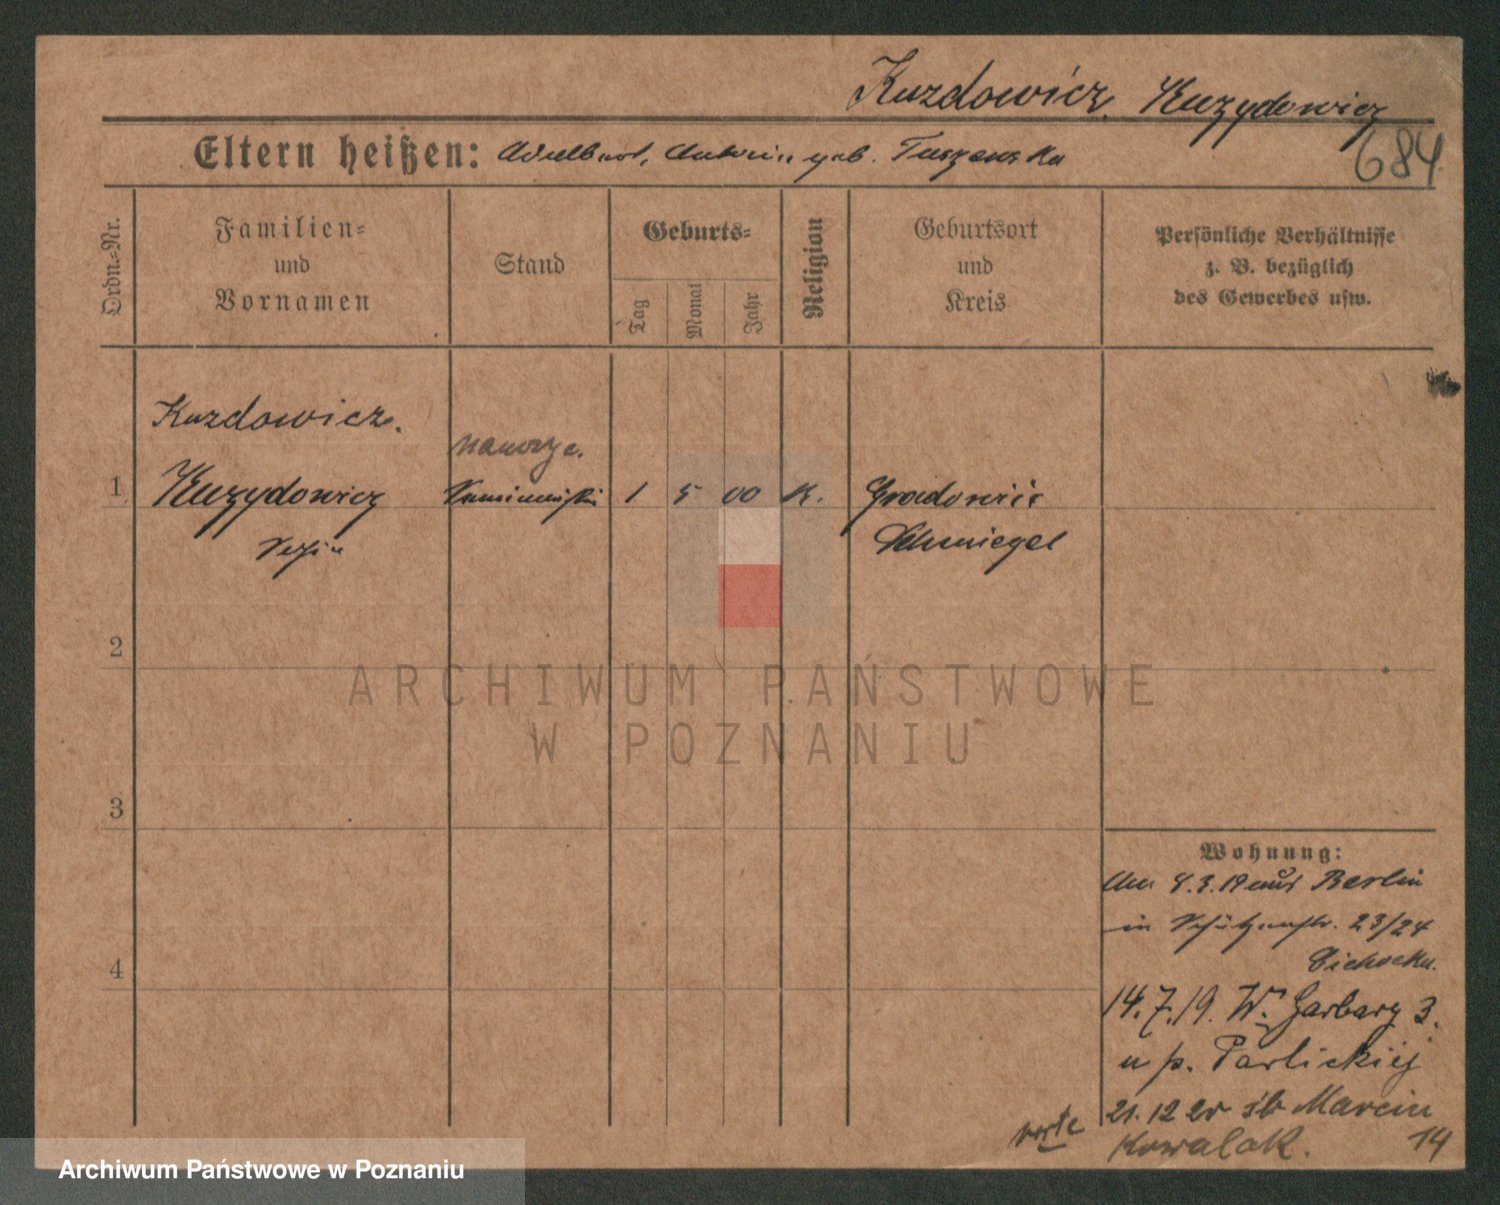 Kuzdowicz. Kuzydowicz
684
Eltern heißen: Adelbert, geb. Tuszewska
Ordn.-Nr.
Familien-
und
Vornamen
Stand
Geburts-
Tag
Monat
Jahr
Religion
Geburtsort
und
Kreis
Persönliche Verhältnisse
z. B. bezüglich
des Gewerbes usw.
Kuzdowicz.
1 Kuzydowicz 1 5 00 K.
Schmiegel
2
3
4
Wohnung:
aus Berlin
in Schützenstr. 23/24
Cichocka.
14.7.19. W. Garbary 3.
u p. Parlickiej
21.12 20 Marcin
Kowalak. 14
ARCHIWUM PAŃSTWOWE
W POZNANIU
Archiwum Państwowe w Poznaniu